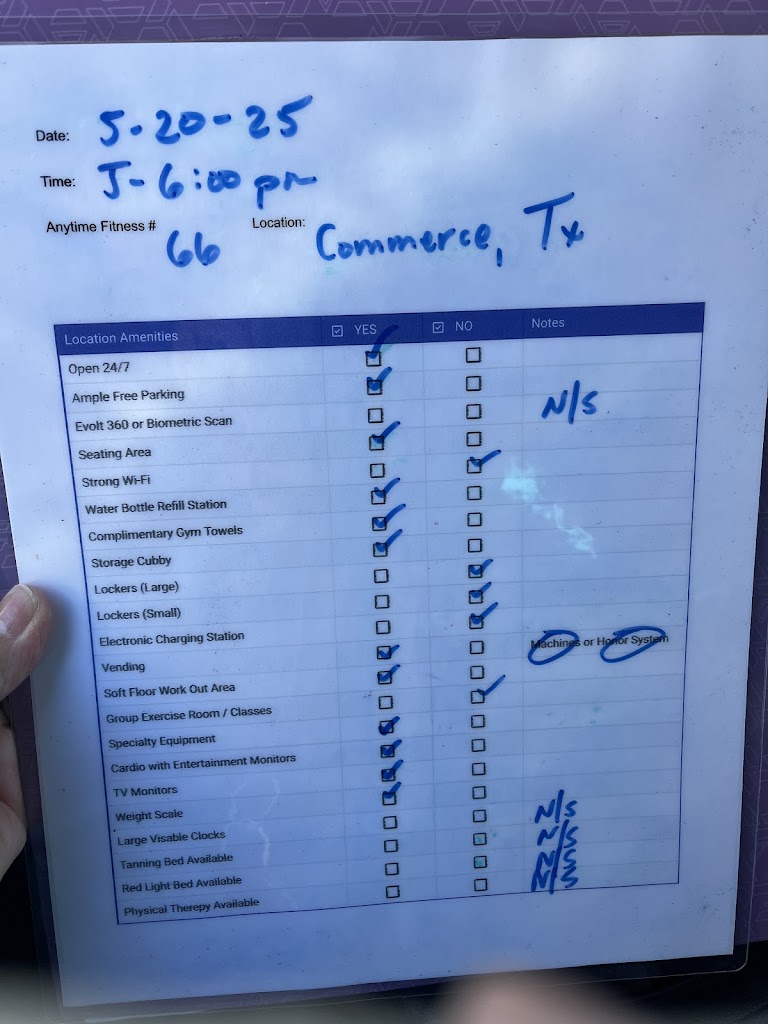 Date: 5-20-25
Time: 5-6:00 pm
Anytime Fitness # 66 Location: Commerce, Tx
Location Amenities YES NO Notes
Open 24/7
Ample Free Parking
Evolt 360 or Biometric Scan N/S
Seating Area
Strong Wi-Fi
Water Bottle Refill Station
Complimentary Gym Towels
Storage Cubby
Lockers (Large)
Lockers (Small)
Electronic Charging Station
Vending Machines or Honor System
Soft Floor Work Out Area
Group Exercise Room / Classes
Specialty Equipment
Cardio with Entertainment Monitors
TV Monitors
Weight Scale
Large Visable Clocks N/S
Tanning Bed Available N/S
Red Light Bed Available N/S
Physical Therepy Available N/S